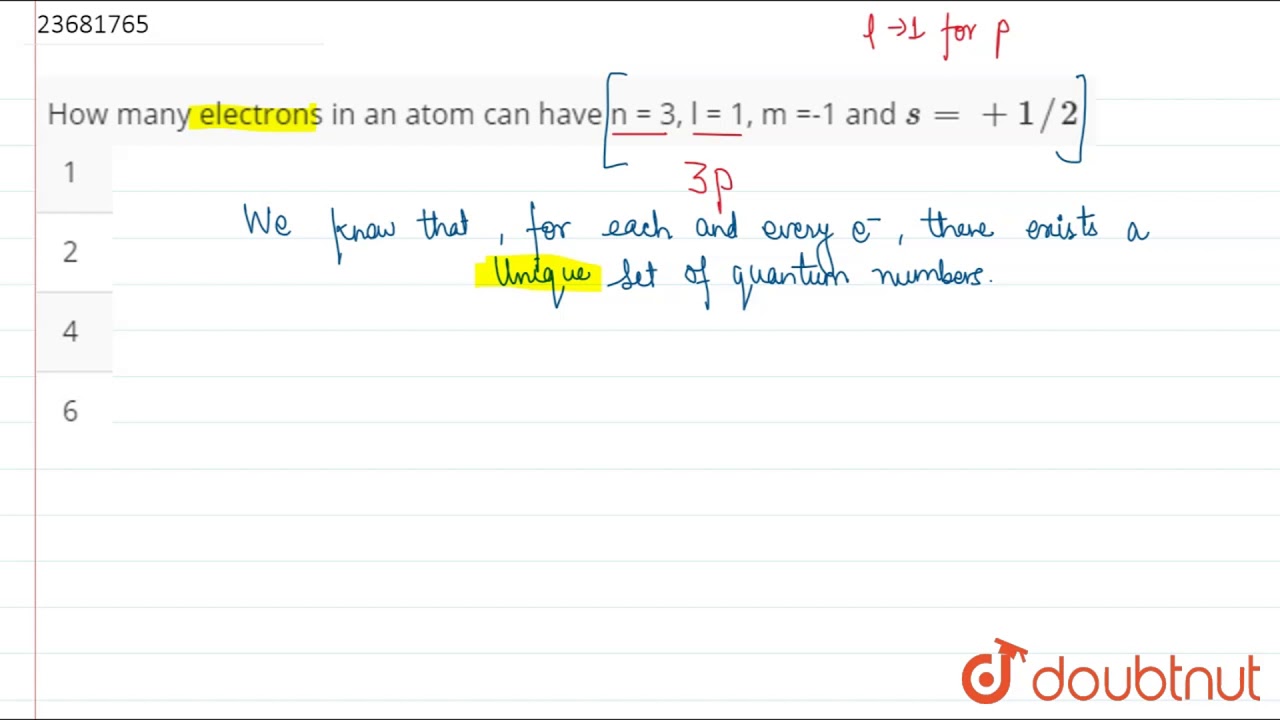 23681765
l → 1 for p
How many electrons in an atom can have [n = 3, l = 1, m =-1 and s = +1/2]
3p
1
We know that, for each and every e⁻, there exists a
Unique set of quantum numbers.
2
4
6
doubtnut